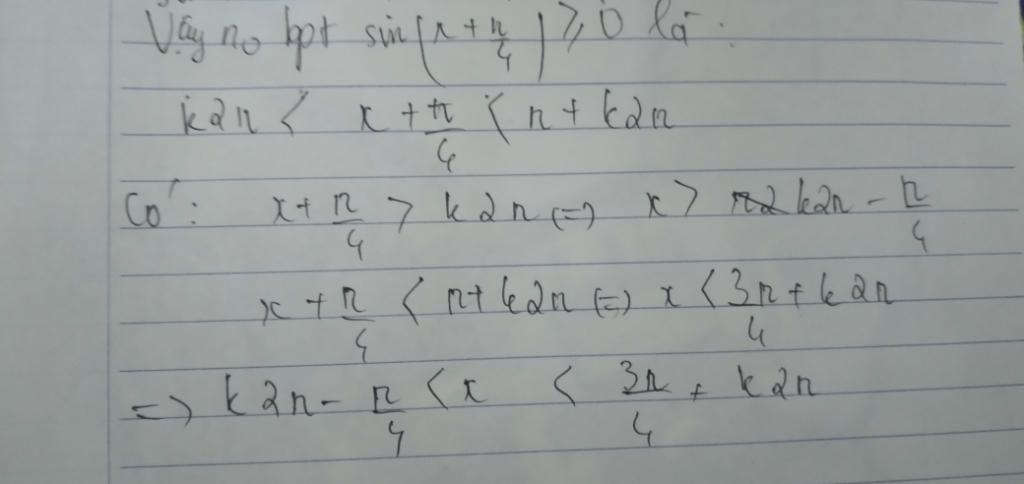 Vậy no bpt sin(x + π/4) ≥ 0 là :
k2π < x + π/4 < π + k2π
Có : x + π/4 > k2π (=) x > k2π - π/4
x + π/4 < π + k2π (=) x < 3π/4 + k2π
=> k2π - π/4 < x < 3π/4 + k2π